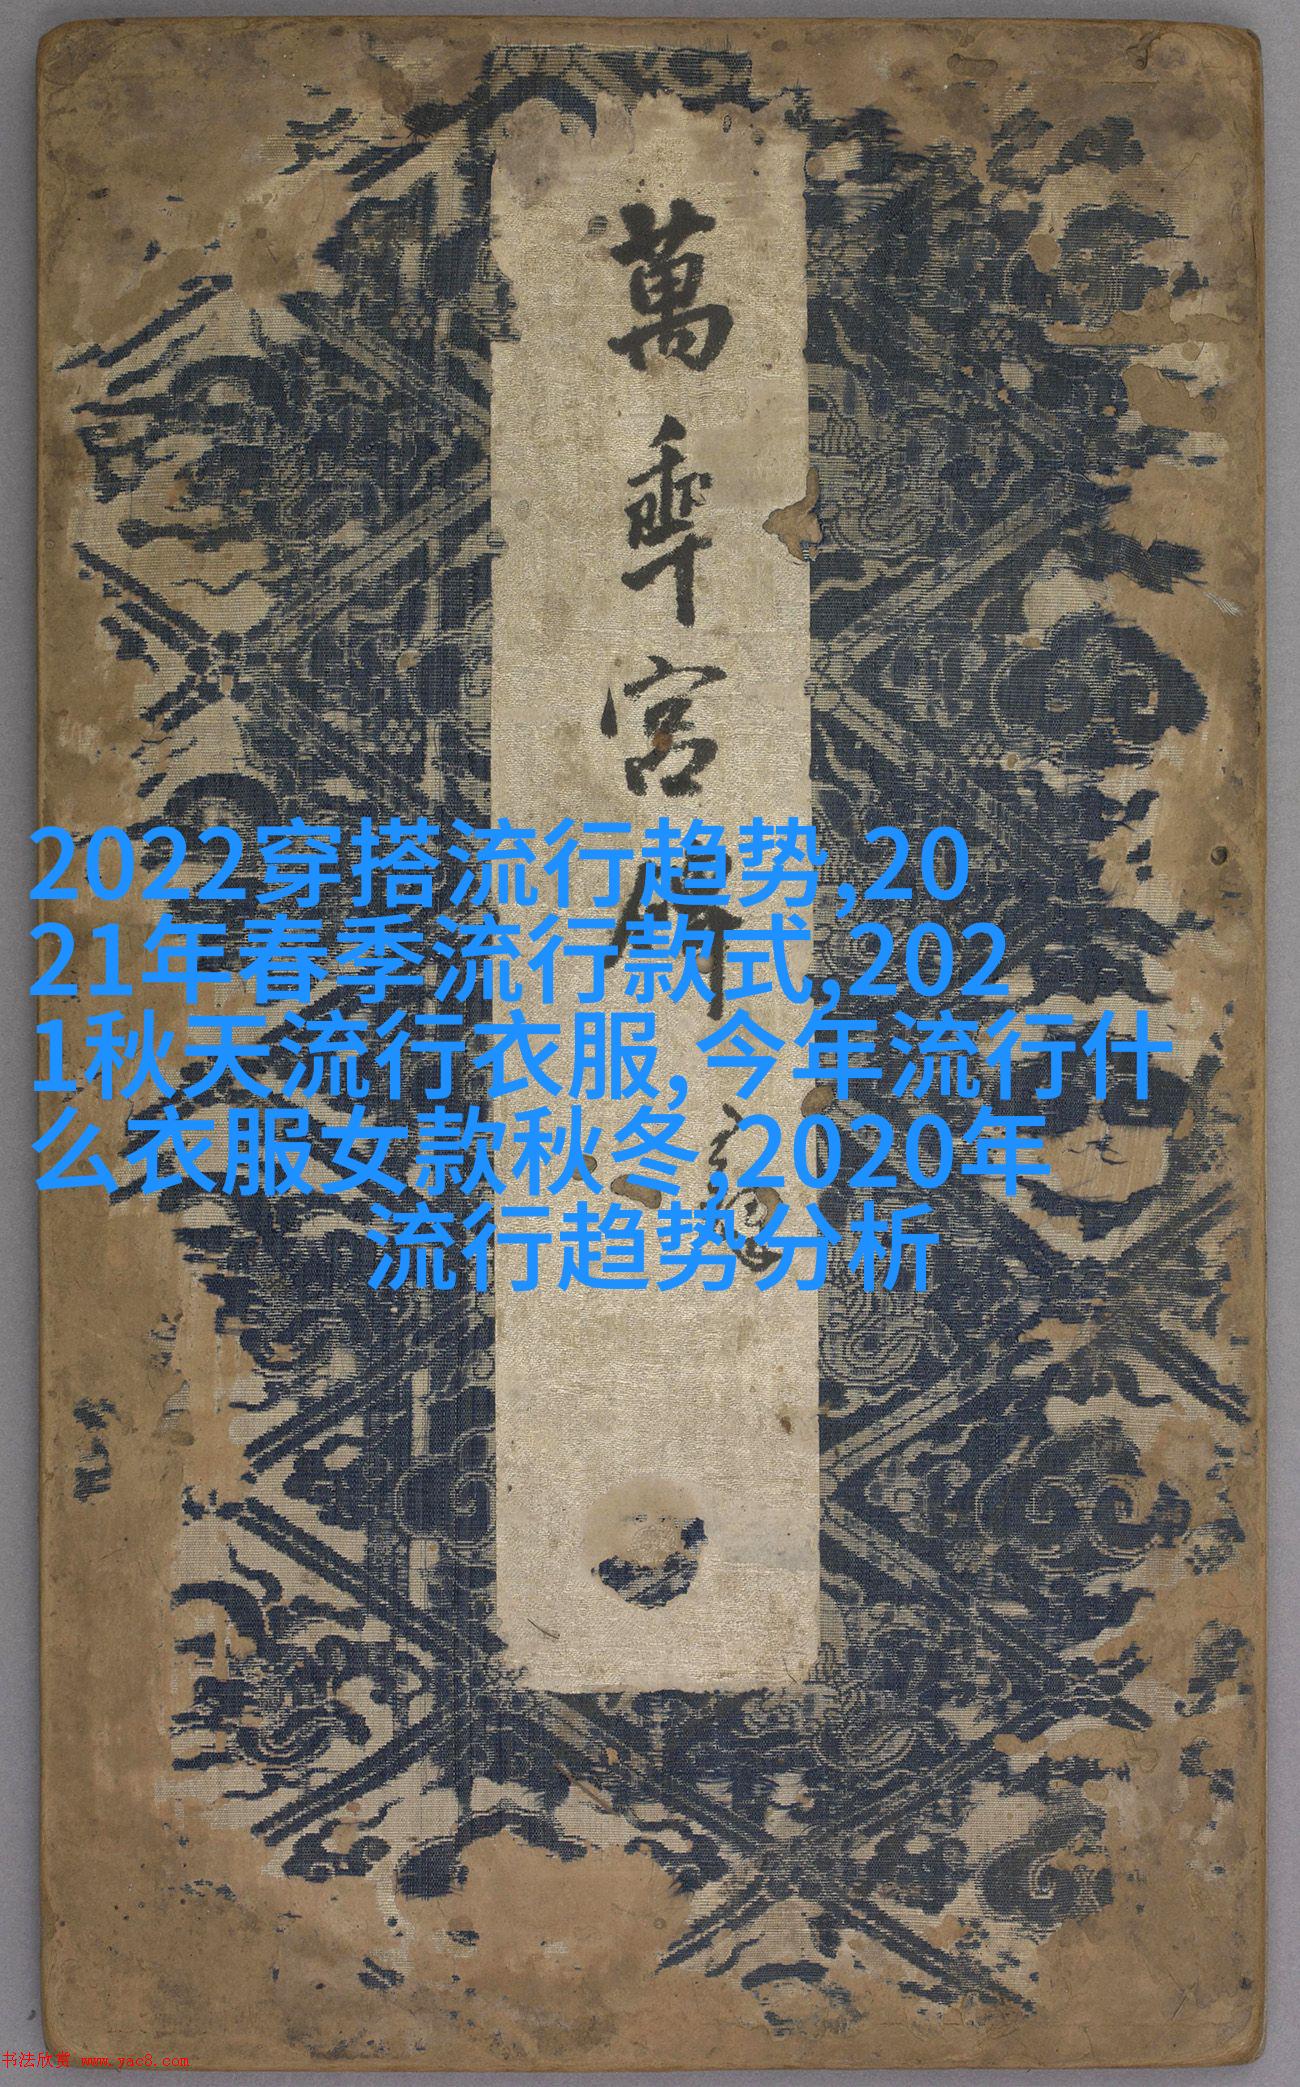 萬年宮
2022穿搭流行趋势,20
21年春季流行款式,202
1秋天流行衣服,今年流行什
么衣服女款秋冬,2020年
流行趋势分析
书法欣赏 www.yac8.com